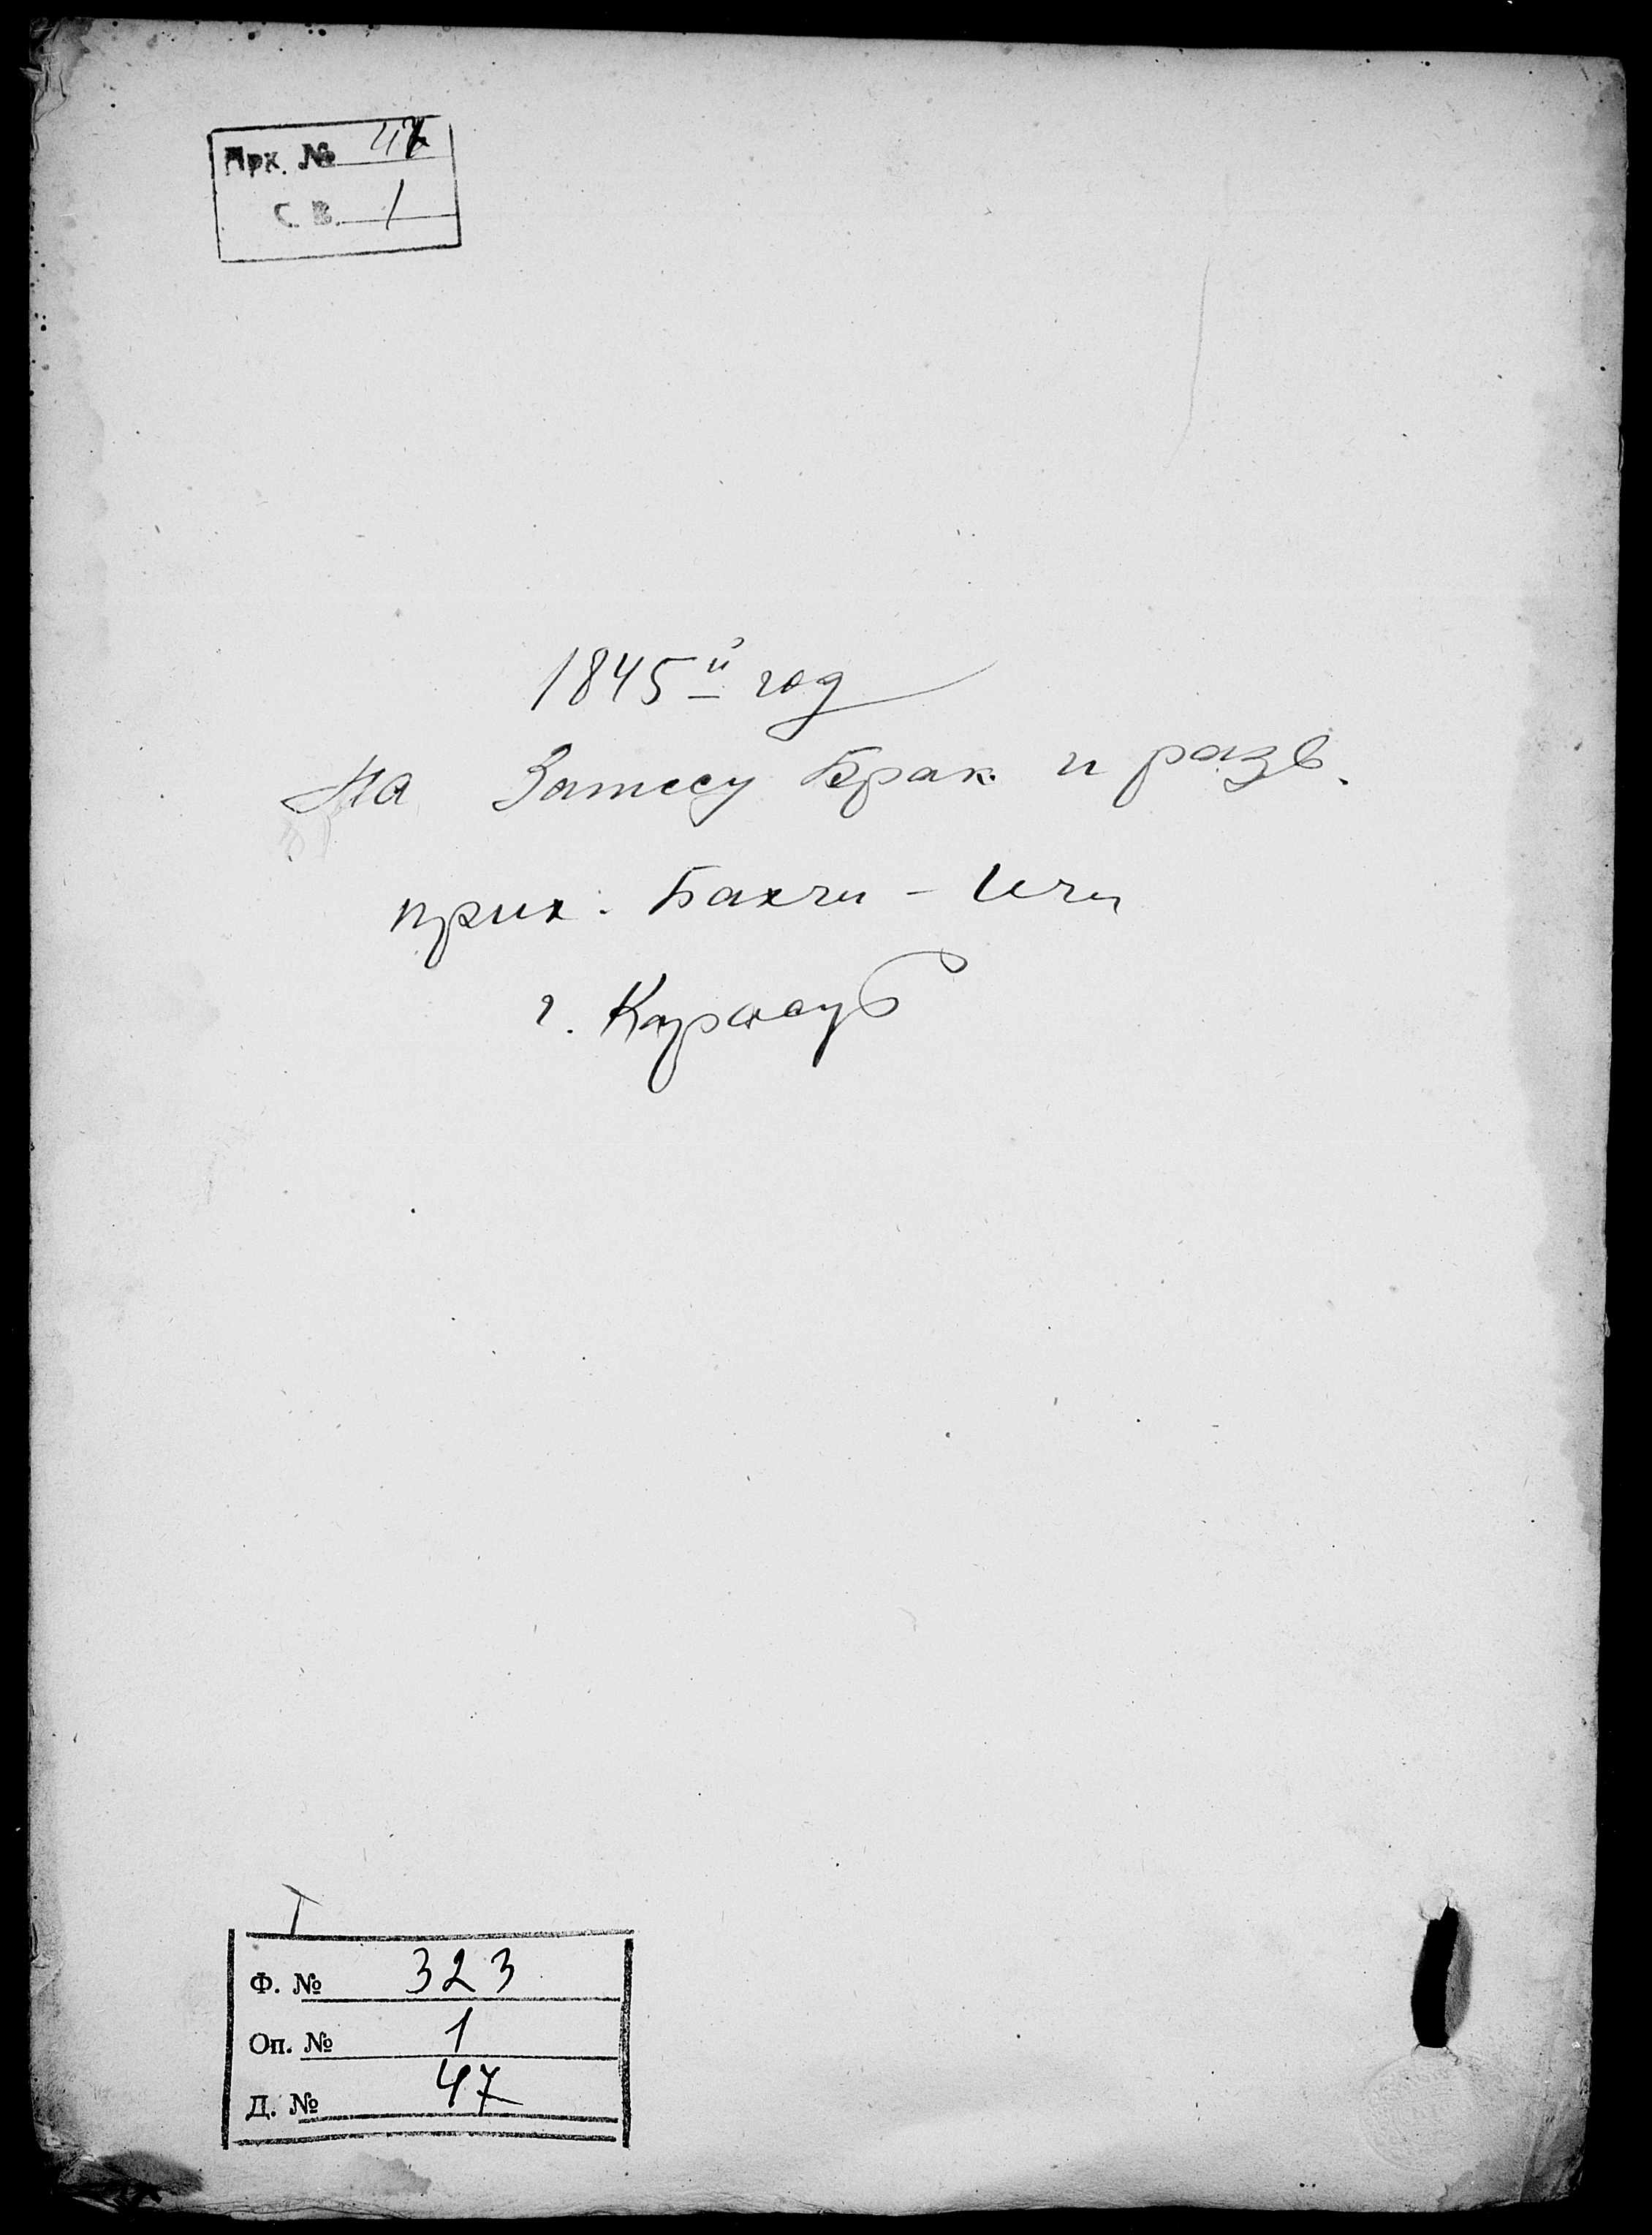 Арх. № 47
С. В. 1
1845й год
На Запису Брак. и разв.
прих. Бахчи - Или
г. Карасуб
I
Ф. № 323
Оп. № 1
Д. № 47